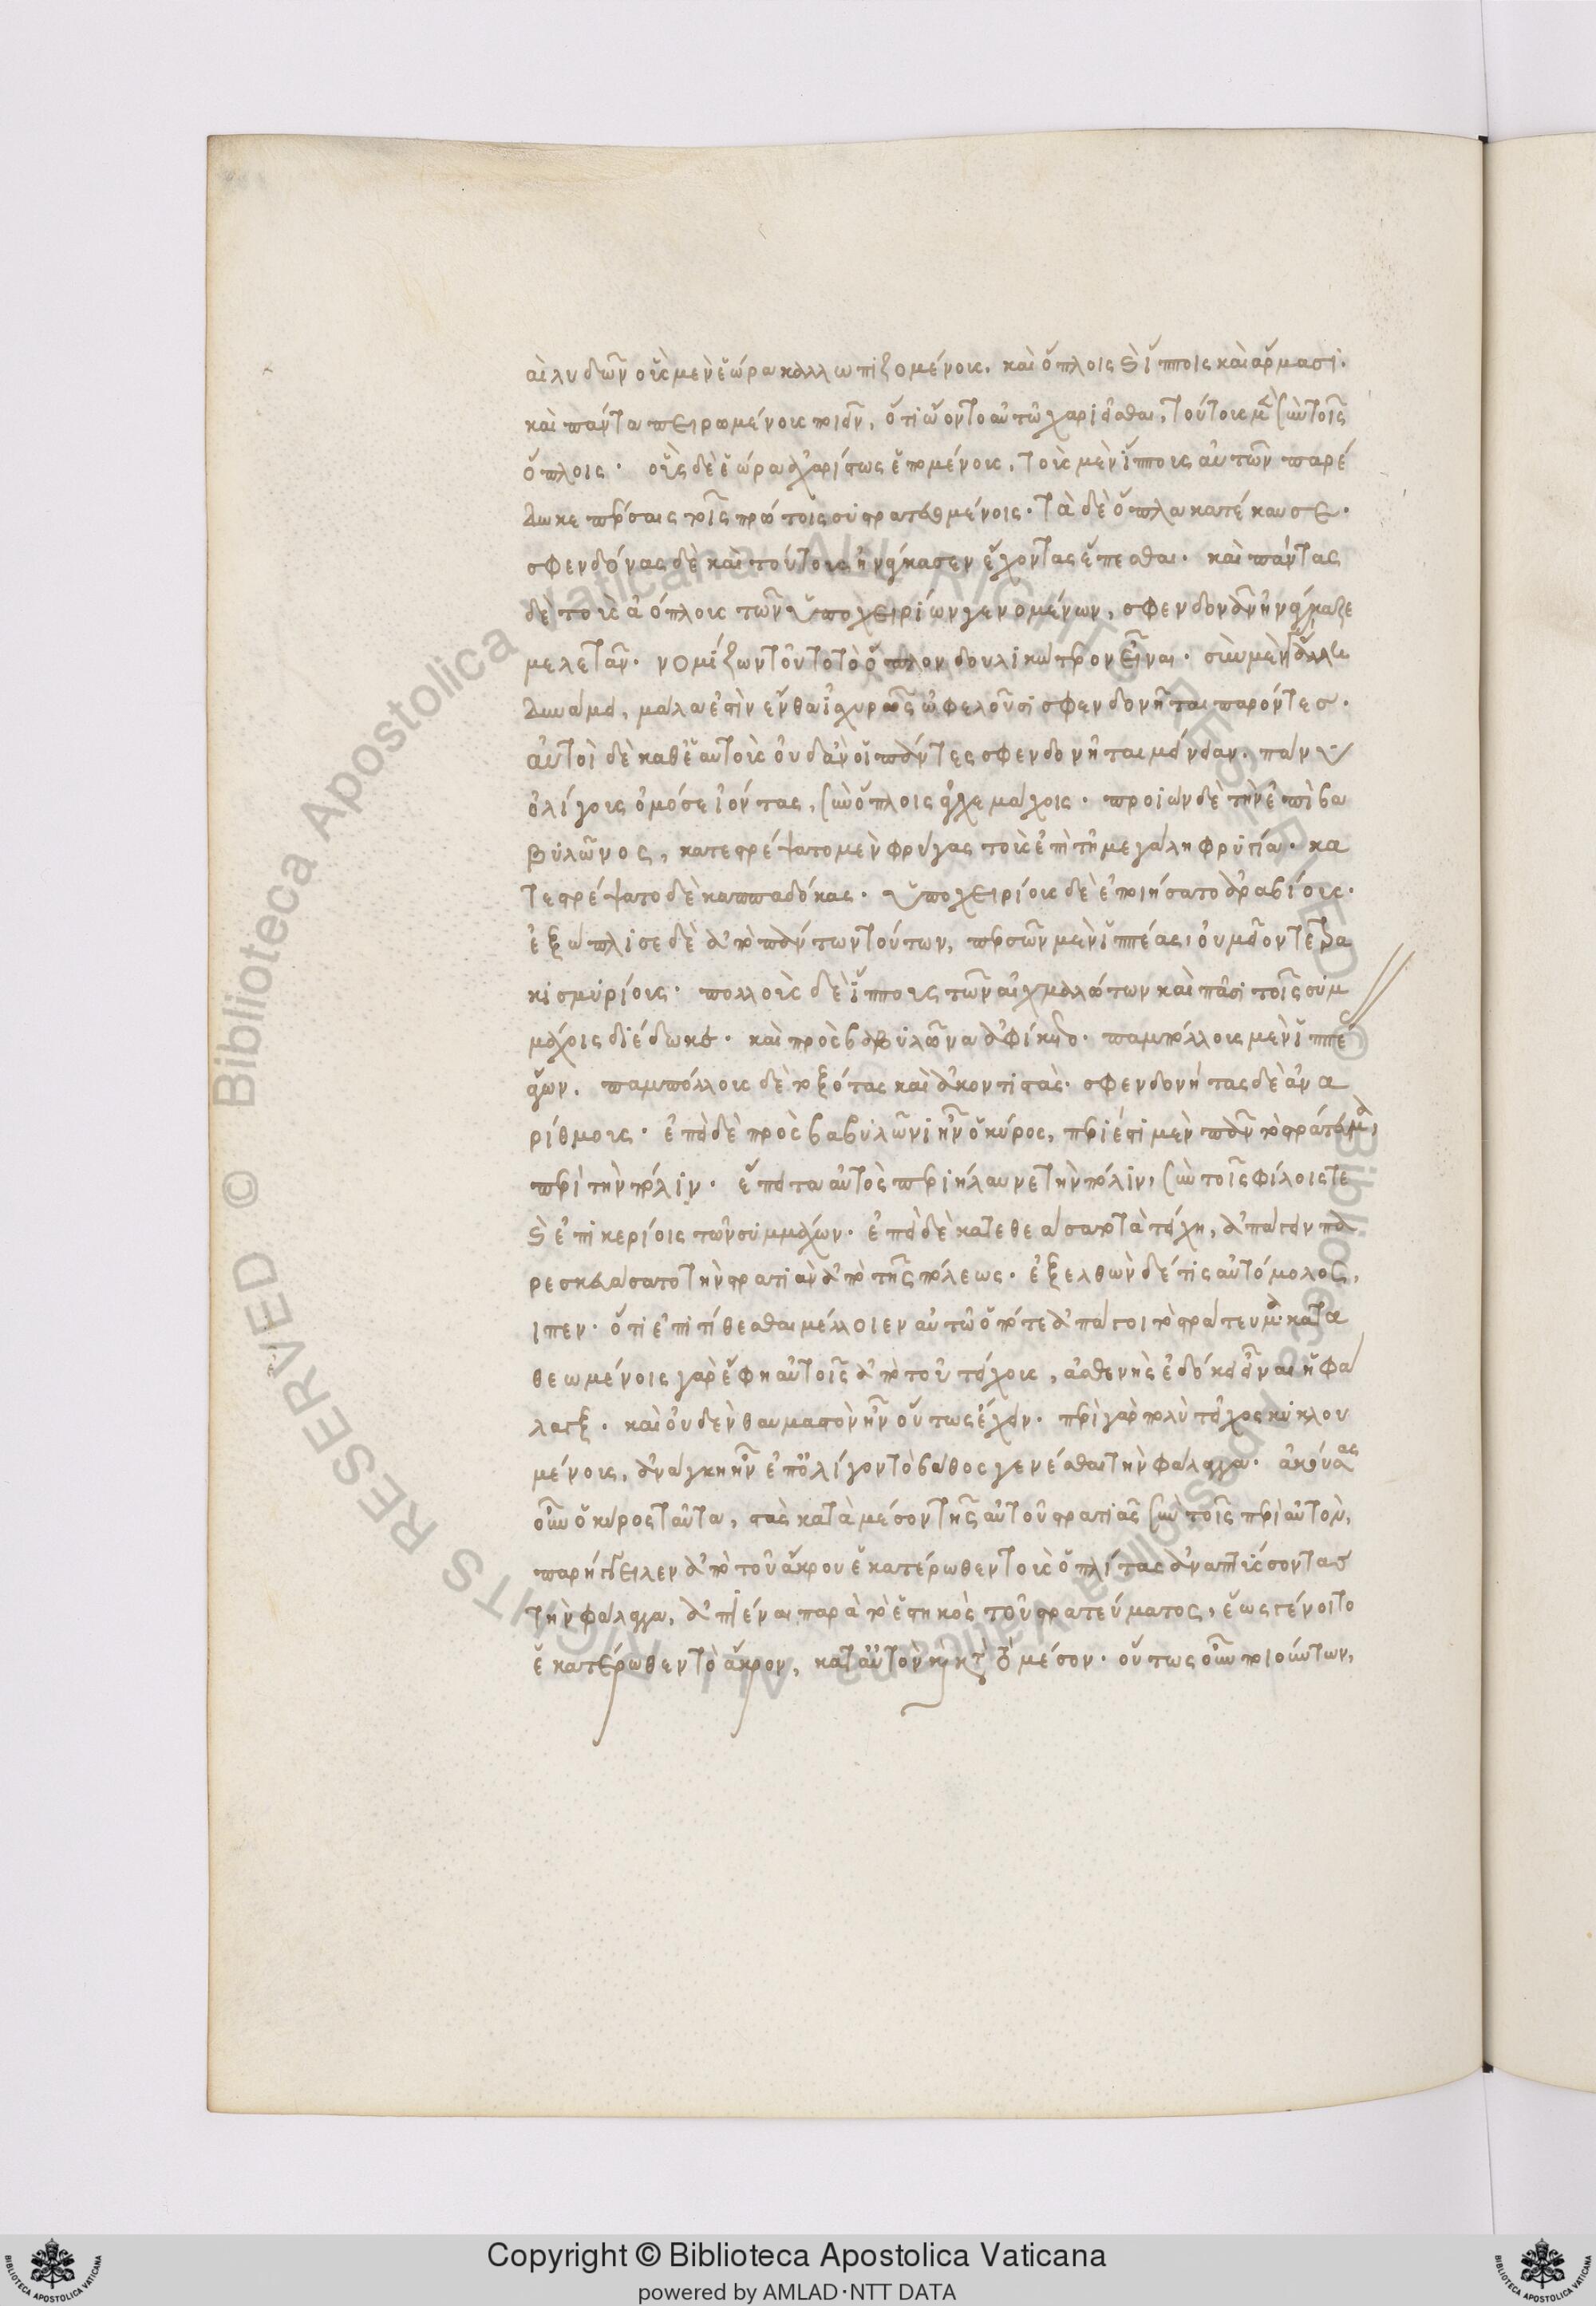 καὶ λυδῶν οὓς μὲν ἑώρα καλλωπιζομένους. καὶ ὅπλοις καὶ ἵπποις καὶ ἅρμασι.
καὶ πάντα πειρωμένους ποιεῖν, ὅτι ᾤοντο αὐτῷ χαριεῖσθαι, τούτους μὲν σὺν τοῖς
ὅπλοις. οὓς δὲ ἑώρα ἀχαρίστως ἑπομένους, τοὺς μὲν ἵππους αὐτῶν παρέ
δωκε πέρσαις τοῖς πρώτοις συστρατευσαμένοις. τὰ δὲ ὅπλα κατέκαυσε.
σφενδόνας δὲ καὶ τούτους ἠνάγκασεν ἔχοντας ἕπεσθαι. καὶ πάντας
δὲ τοὺς ἀόπλους τῶν ὑποχειρίων γενομένων, σφενδονᾶν ἠνάγκαζε
μελετᾶν. νομίζων τοῦτο τὸ ὅπλον δουλικώτερον εἶναι. σὺν μὲν γὰρ ἄλλῃ
δυνάμει, μάλα ἐστὶν ἔνθα ἰσχυρῶς ὠφελοῦσι σφενδονῆται παρόντες.
αὐτοὶ δὲ καθ' ἑαυτοὺς οὐδ' ἂν οἱ πάντες σφενδονῆται μείνειαν. πάνυ
ὀλίγους ὁμόσε ἰόντας, σὺν ὅπλοις ἀγχεμάχοις. προϊὼν δὲ τὴν ἐπὶ βα
βυλῶνος, κατεστρέψατο μὲν φρύγας τοὺς ἐπὶ τῇ μεγάλῃ φρυγίᾳ. κα
τεστρέψατο δὲ καππαδόκας. ὑποχειρίους δὲ ἐποιήσατο ἀραβίους.
ἐξώπλισε δὲ ἀπὸ πάντων τούτων, περσῶν μὲν ἱππέας, οὐ μεῖον τετρα
κισμυρίους. πολλοὺς δὲ ἵππους τῶν αἰχμαλώτων καὶ πᾶσι τοῖς συμ
μάχοις διέδωκε. καὶ πρὸς βαβυλῶνα ἀφίκετο. παμπόλλους μὲν ἱππέας
ἄγων. παμπόλλους δὲ τοξότας καὶ ἀκοντιστὰς. σφενδονήτας δὲ ἀνα
ρίθμους. ἐπεὶ δὲ πρὸς βαβυλῶνι ἦν ὁ κῦρος, περιέστησε μὲν πᾶν τὸ στράτευμα,
περὶ τὴν πόλιν. ἔπειτα αὐτὸς περιήλαυνε τὴν πόλιν, σὺν τοῖς φίλοις τε
καὶ ἐπικαιρίοις τῶν συμμάχων. ἐπεὶ δὲ κατεθεάσατο τὰ τείχη, ἀπάγειν πα
ρεσκευάσατο τὴν στρατιὰν ἀπὸ τῆς πόλεως. ἐξελθὼν δέ τις αὐτόμολος,
εἶπεν. ὅτι ἐπιτίθεσθαι μέλλοιεν αὐτῷ ὁπότε ἀπάγοι τὸ στράτευμα. κατα
θεωμένοις γὰρ ἔφη αὐτοῖς ἀπὸ τοῦ τείχους, ἀσθενὴς ἐδόκει εἶναι ἡ φά
λαγξ. καὶ οὐδὲν θαυμαστὸν ἦν οὕτως ἔχειν. περὶ γὰρ πολὺ τεῖχος κυκλου
μένοις, ἀνάγκη ἦν ἐπ' ὀλίγον τὸ βάθος γενέσθαι τὴν φάλαγγα. ἀκούσας
οὖν ὁ κῦρος ταῦτα, στὰς κατὰ μέσον τῆς αὐτοῦ στρατιᾶς σὺν τοῖς περὶ αὐτὸν,
παρήγγειλεν ἀπὸ τοῦ ἄκρου ἑκατέρωθεν τοὺς ὁπλίτας ἀναπτύσσοντας
τὴν φάλαγγα, ἀπιέναι παρὰ τὸ ἑστηκὸς τοῦ στρατεύματος, ἕως γένοιτο
ἑκατέρωθεν τὸ ἄκρον, κατ' αὐτὸν καὶ κατὰ τὸ μέσον. οὕτως οὖν ποιούντων,
Copyright © Biblioteca Apostolica Vaticana
powered by AMLAD·NTT DATA